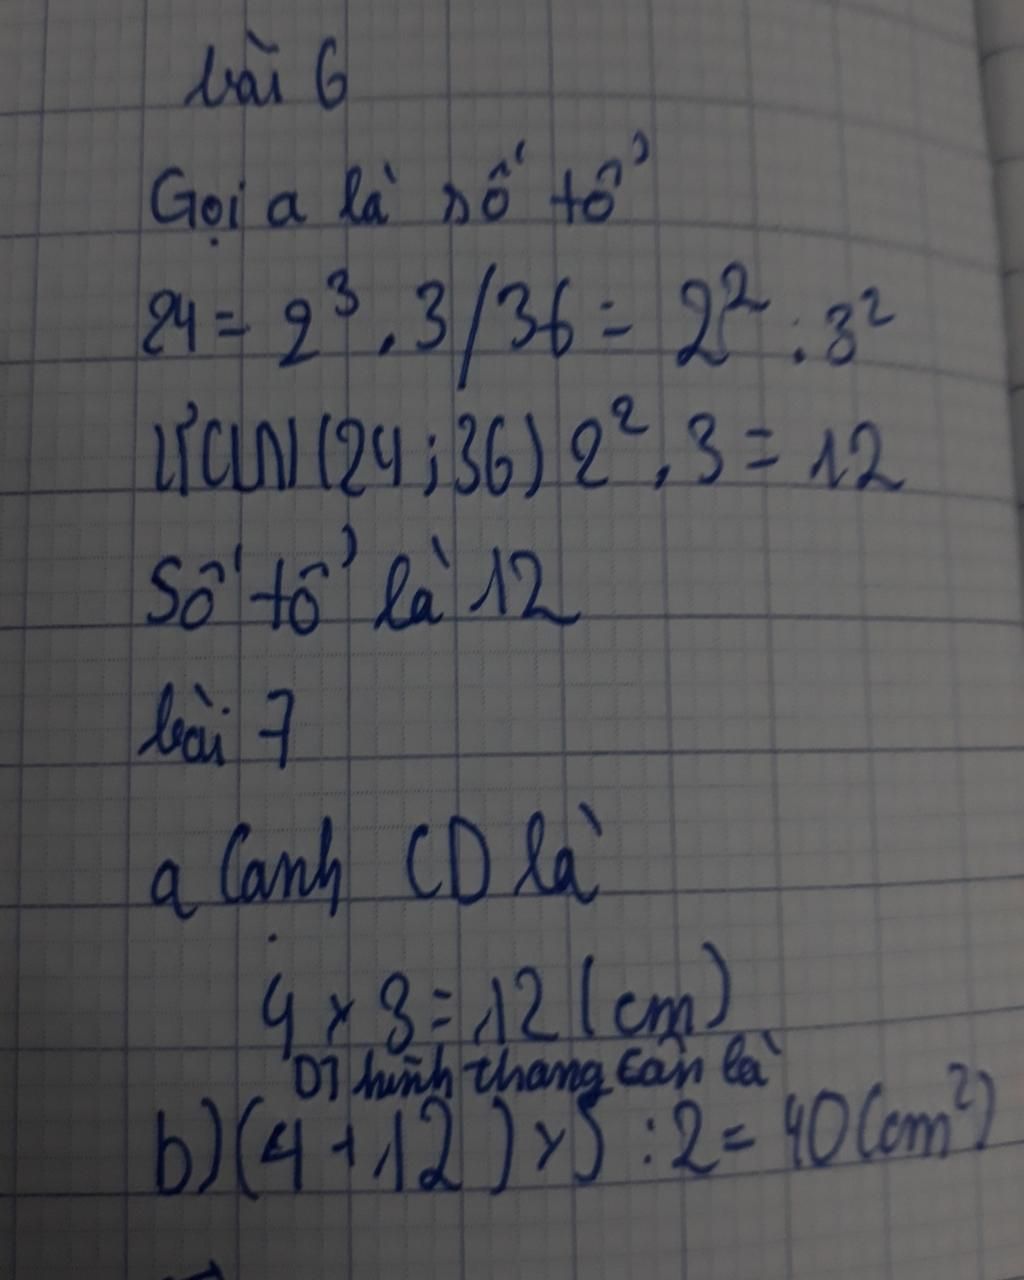 bài 6
Gọi a là số tổ
24 = 2³ . 3 / 36 = 2² : 3²
ƯCLN (24 ; 36) 2² . 3 = 12
Số tổ là 12
bài 7
a Cạnh CD là
4 x 3 = 12 (cm)
DT hình thang cân là
b) (4 + 12) x 5 : 2 = 40 (cm²)